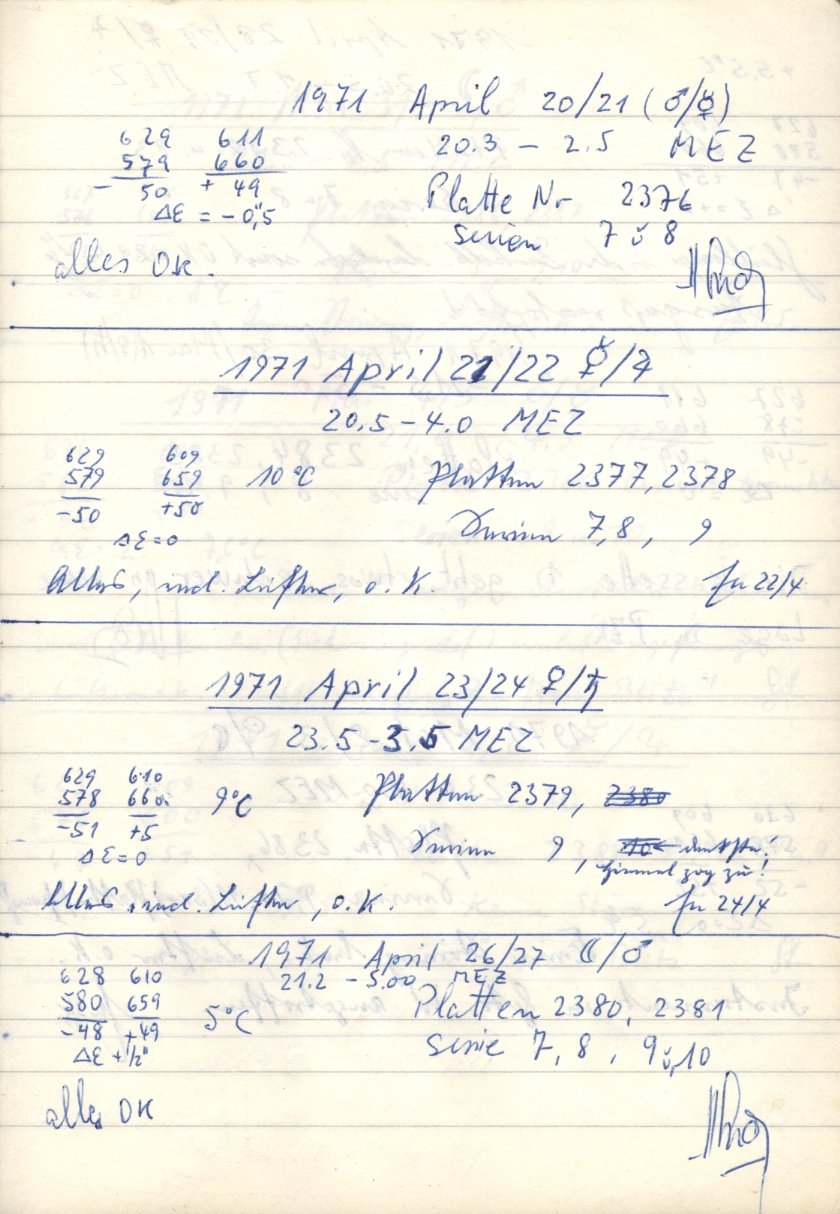 1971 April 20/21 (♂/☿)
629 611 20.3 – 2.5 MEZ
579 660
– 50 + 49 Platte Nr 2376
Δε = – 0",5 Serien 7 ü 8
alles OK.
1971 April 21/22 ☿/♃
20.5 – 4.0 MEZ
629 609
579 659 10°C Platten 2377, 2378
-50 +50
Δε=0 Serien 7, 8, 9
Alles, incl. Lüfter, o.K. 22/4
1971 April 23/24 ♀/♄
23.5 – 3.5 MEZ
629 610
578 660 9°C Platten 2379, 2380
-51 +5
Δε=0 Serien 9, 10
Himmel zog zu!
Alles, incl. Lüfter, o.K. 24/4
1971 April 26/27 ☾/♂
628 610 21.2 – 5.00 MEZ
580 659 5°C Platten 2380, 2381
-48 +49
Δε +1/2" Serie 7, 8, 9 ü 10
alles OK